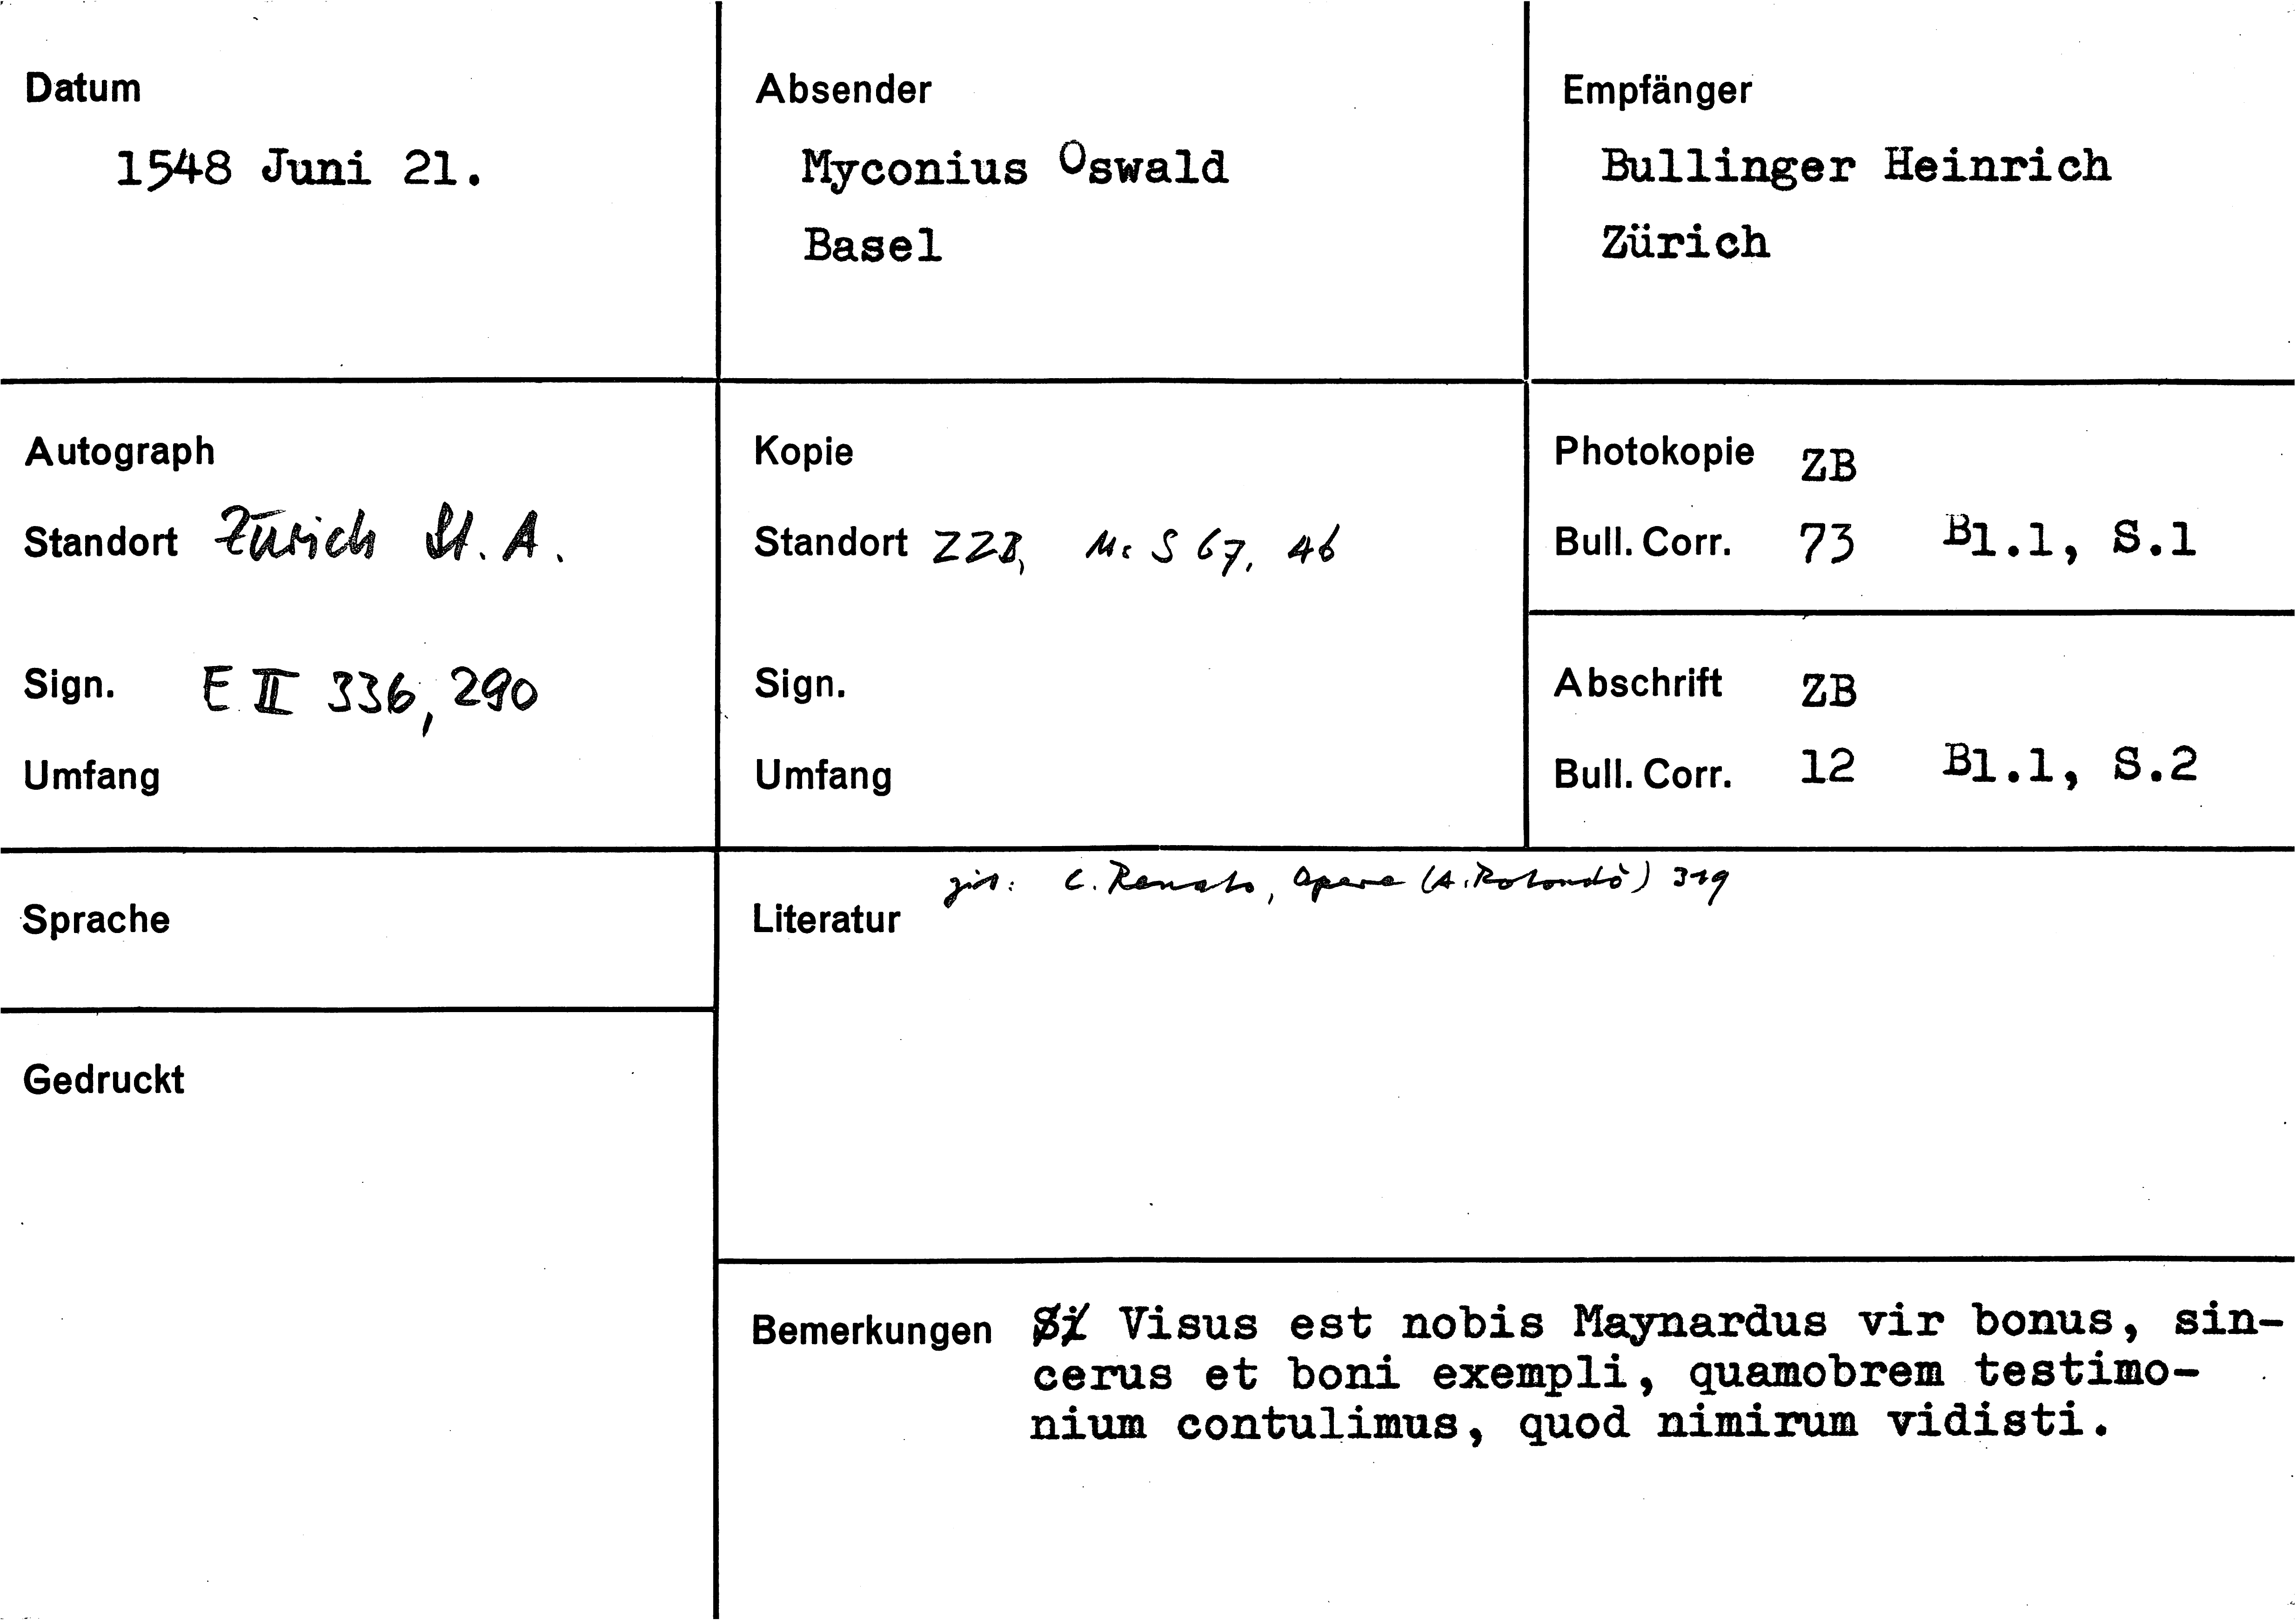 Datum
1548 Juni 21.
Absender
Myconius Oswald
Basel
Empfänger
Bullinger Heinrich
Zürich
Autograph
Standort Zürich St. A.
Sign. E II 336, 290
Umfang
Kopie
Standort ZZB, Ms S 67, 46
Sign.
Umfang
Photokopie ZB
Bull. Corr. 73 Bl.1, S.1
Abschrift ZB
Bull. Corr. 12 Bl.1, S.2
Sprache
Gedruckt
Literatur
zit: C. Renato, Opere (A. Rotondò) 319
Bemerkungen Visus est nobis Maynardus vir bonus, sin-
cerus et boni exempli, quamobrem testimo-
nium contulimus, quod nimirum vidisti.